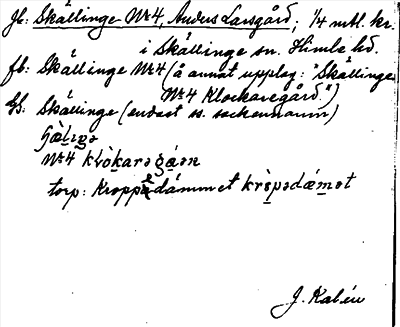 Jb: Skällinge Nr 4, Anders Larsgård; 1/4 mtl. kr.
i Skällinge sn. Himle hd.
fb: Skällinge Nr 4 (å annat upplag: "Skällinge
Nr 4 Klockaregård.")
Us: Skällinge (endast ss. sockennamn)
Nr 4 kvòkarəgǻən
torp: Kroppedámmet kròpədǽmət
J. Kalén